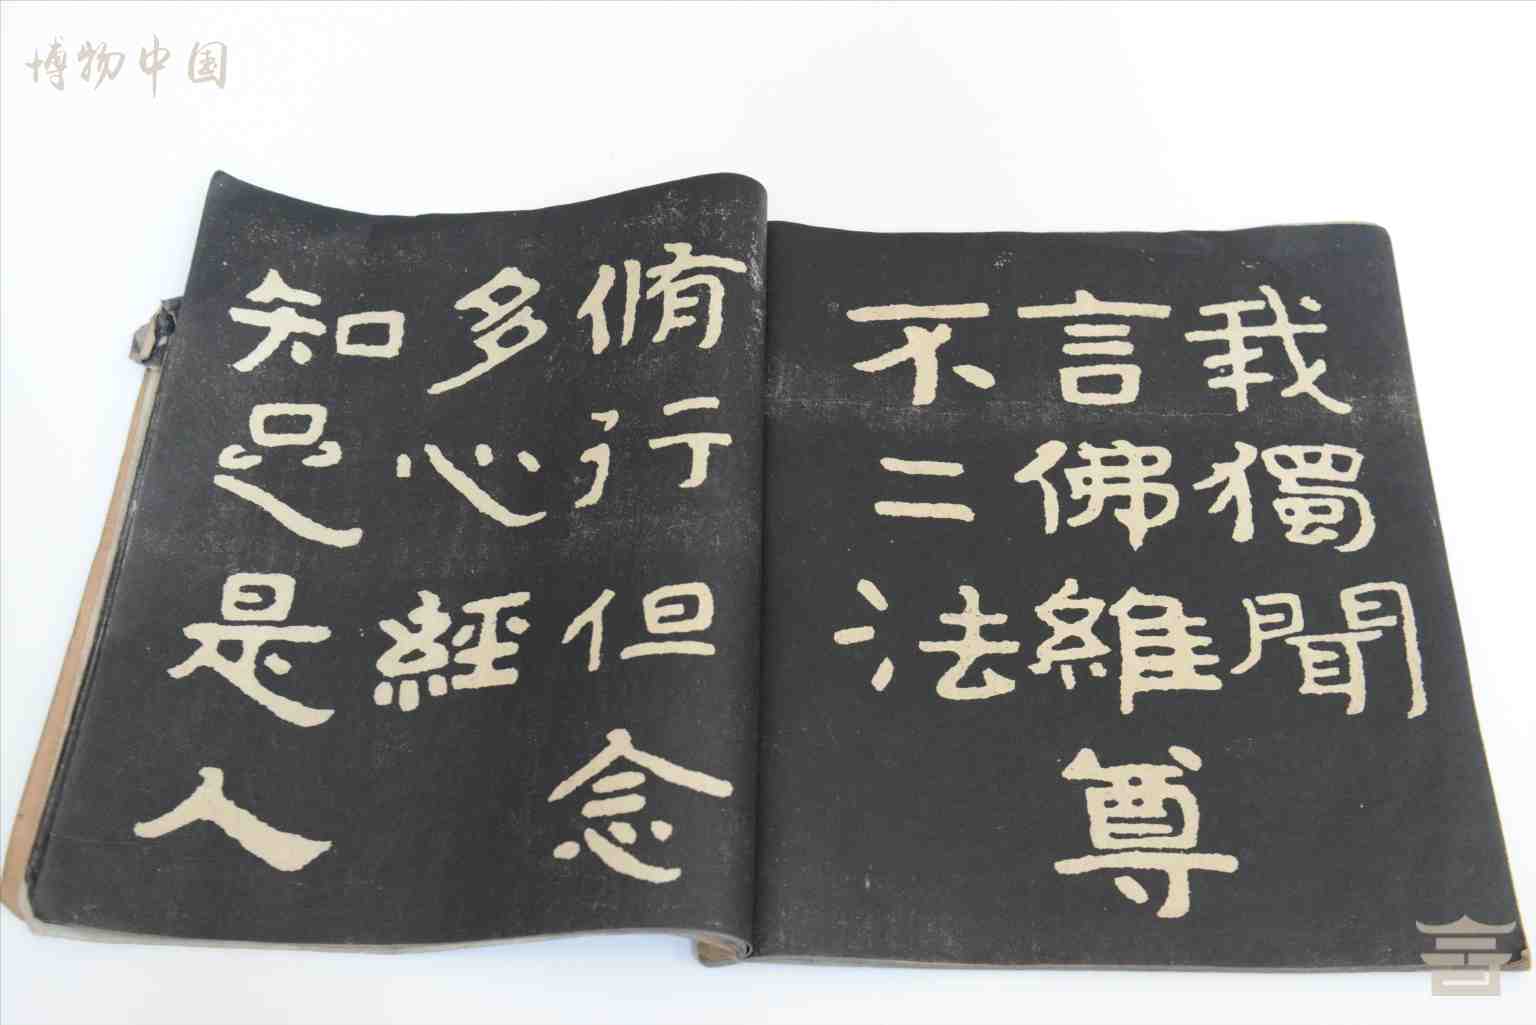 博物中国
我獨聞
言佛維尊
不二法
脩行但念
多心經
知足是人